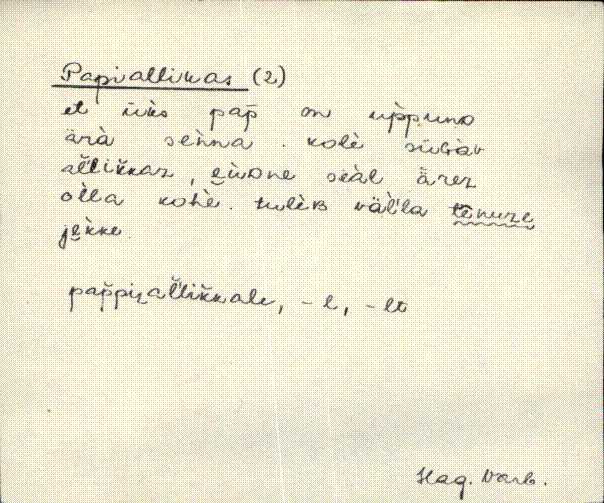 Papiallikas (2)
et ǖks pap̆ on uppuno
ärà senna. kolè sùGàv
al̆likkaz, eiDne seàl ärez
òlla kohè. tulèB väl'la tenuze
jekke.
pap̆pizal̆likkale, -l, -lt
Hag. Varb.